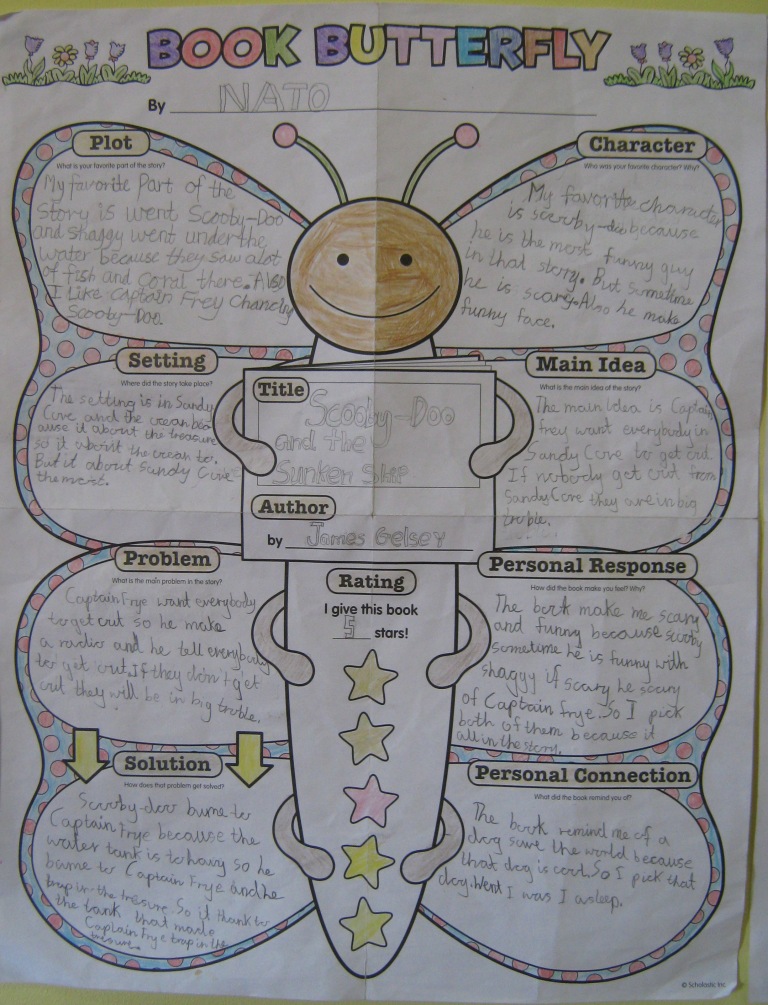 BOOK BUTTERFLY
By NATO
Plot
What is your favorite part of the story?
My favorite Part of the
story is went Scooby-Doo
and shaggy went under the
water because they saw alot
of fish and coral there. Also
I Like Captain Frey Chancing
Scooby-Doo.
Character
Who was your favorite character? Why?
My favorite character
is scooby-doo because
he is the most funny guy
in that story. But sometime
he is scary. Also he make
funny face.
Setting
Where did the story take place?
The setting is in Sandy
Cove and the ocean bec
ause it about the treasure
so it about the ocean to.
But it about Sandy Cove
the most.
Title
Scooby-Doo
and the
Sunken Ship
Author
by James Gelsey
Main Idea
What is the main idea of the story?
The main Idea is Captain
frey want everybody in
Sandy Cove to get out.
If nobody get out from
Sandy Cove they are in big
troble.
Problem
What is the main problem in the story?
Captain Frye want everybody
to get out so he make
a radio and he tell everybody
to get out. If they don't get
out they will be in big troble.
Rating
I give this book
5 stars!
Personal Response
How did the book make you feel? Why?
The book make me scary
and funny because scooby
sometime he is funny with
shaggy if scary he scary
of Captain frye. So I pick
both of them because it
all in the story.
Solution
How does that problem get solved?
Scooby-doo bume to
Captain Frye because the
water tank is to havy so he
bume to Captain Frye and he
trap in the tresure. So it thank to
the tank that made
Captain Frye trap in the
tresure.
Personal Connection
What did the book remind you of?
The book remind me of a
dog save the world because
that dog is cool. So I pick that
dog. Went I was I asleep.
© Scholastic Inc.